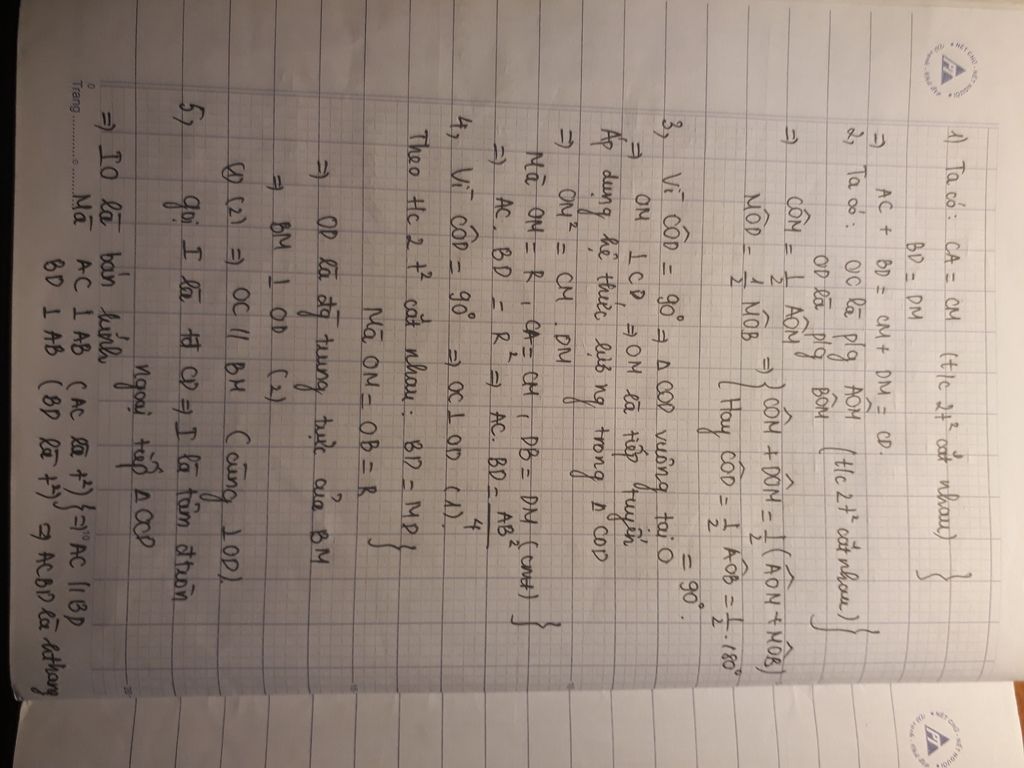 1) Ta có: CA = CM (t/c 2t² cắt nhau) }
BD = DM
=> AC + BD = CM + DM = CD.
2, Ta có: OC là p/g AÔM (t/c 2t² cắt nhau) }
OD là p/g BÔM
=> CÔM = 1/2 AÔM
MÔD = 1/2 MÔB => { CÔM + DÔM = 1/2 (AÔM + MÔB)
Hay CÔD = 1/2 AÔB = 1/2 . 180°
= 90°.
3, Vì CÔD = 90° => Δ COD vuông tại O
=> OM ⊥ CD => OM là tiếp tuyến
Áp dụng hệ thức lượng trong Δ COD
=> OM² = CM . DM
Mà OM = R, CA = CM, DB = DM (cmt) }
=> AC . BD = R² => AC . BD = AB²/4
4, Vì CÔD = 90° => OC ⊥ OD (1)
Theo t/c 2 t² cắt nhau: BD = MD }
Mà OM = OB = R
=> OD là đg trung trực của BM
=> BM ⊥ OD (2)
(1) (2) => OC // BM (cùng ⊥ OD)
5, gọi I là tđ CD => I là tâm đtròn
ngoại tiếp Δ COD
=> IO là bán kính
Mà AC ⊥ AB (AC là t²) } => AC // BD
BD ⊥ AB (BD là t²) => ACBD là hthang
Trang
NÉT CHỮ - NẾT NGƯỜI
NÉT CHỮ - NẾT NGƯỜI